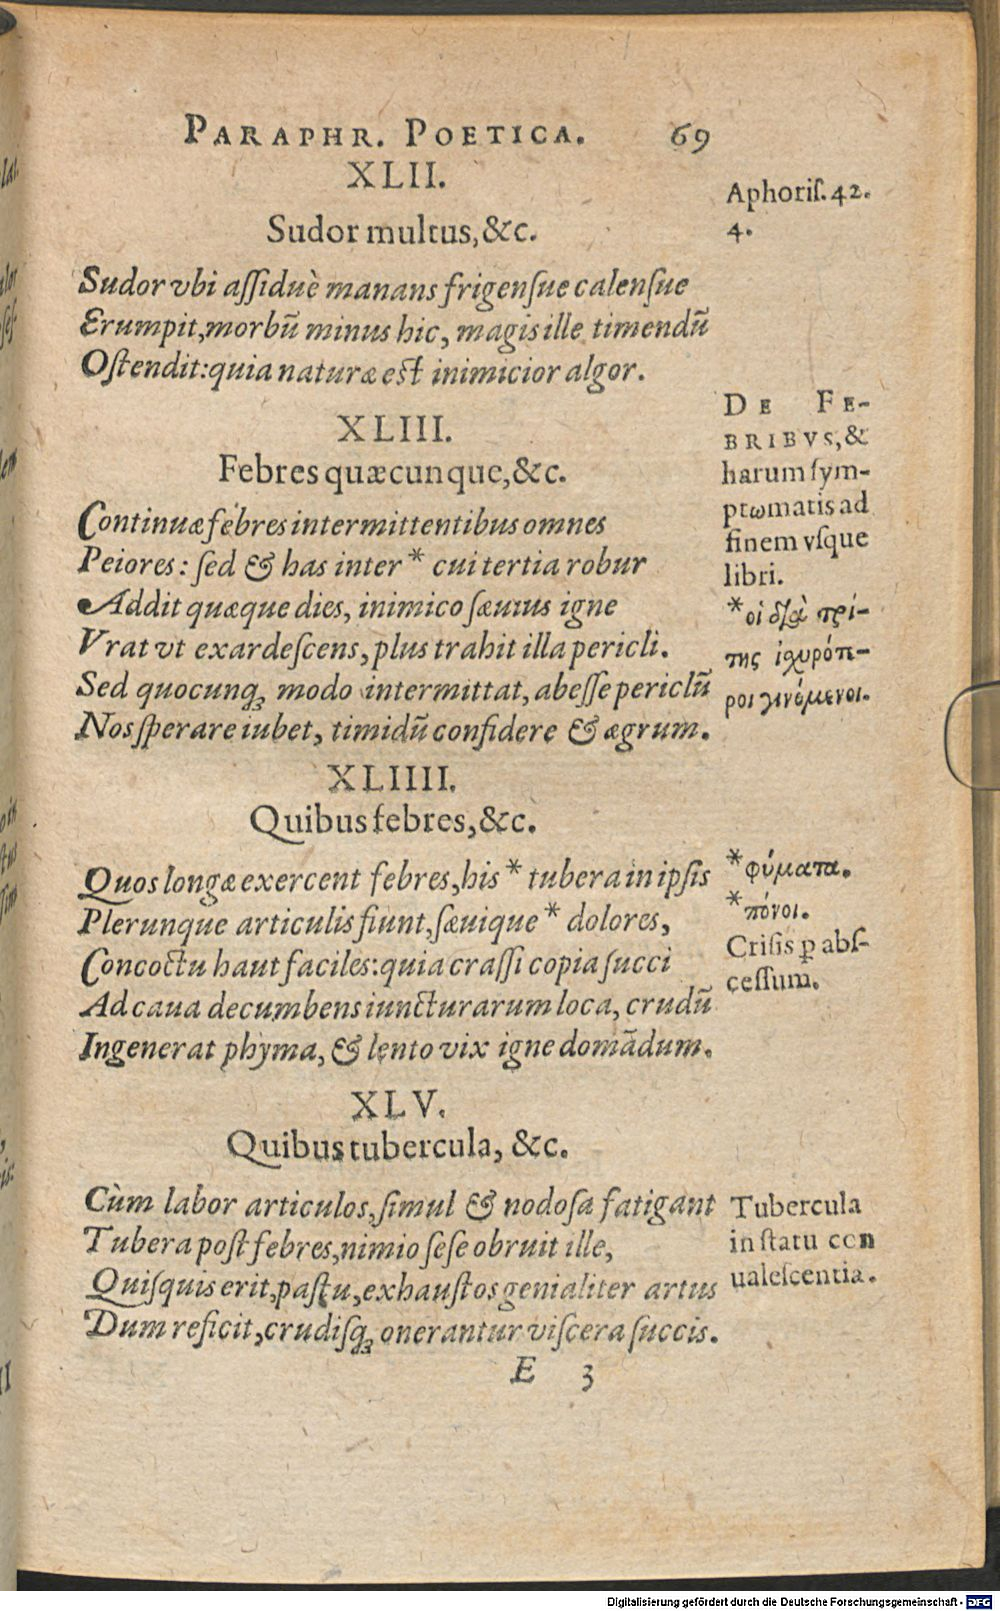 PARAPHR. POETICA. 69
XLII.
Aphoriſ. 42.
4.
Sudor multus, &c.
Sudor vbi aſſiduè manans frigenſue calenſue
Erumpit, morbū minus hic, magis ille timendū
Oſtendit: quia naturæ eſt inimicior algor.
XLIII.
Febres quæcunque, &c.
DE FE-
BRIBVS, &
harum ſym-
ptωmatis ad
finem vſque
libri.
*οἱ διὰ τρί-
της ἰσχυρότε-
ροι γινόμενοι.
Continuæ febres intermittentibus omnes
Peiores: ſed & has inter * cui tertia robur
Addit quæque dies, inimico ſæuius igne
Vrat vt exardeſcens, plus trahit illa pericli.
Sed quocunqꝫ modo intermittat, abeſſe periclū
Nos ſperare iubet, timidū confidere & ægrum.
XLIIII.
Quibus febres, &c.
Quos longæ exercent febres, his * tubera in ipſis
Plerunque articulis fiunt, ſæuique * dolores,
Concoctu haut faciles: quia craſſi copia ſucci
Ad caua decumbens iuncturarum loca, crudū
Ingenerat phyma, & lento vix igne domādum.
*φύματα.
*πόνοι.
Criſis ꝑ abſ-
ceſſum.
XLV.
Quibus tubercula, &c.
Cùm labor articulos, ſimul & nodoſa fatigant
Tubera poſt febres, nimio ſeſe obruit ille,
Quiſquis erit, paſtu, exhauſtos genialiter artus
Dum reficit, crudiſqꝫ onerantur viſcera ſuccis.
Tubercula
in ſtatu con
ualeſcentia.
E 3
Digitalisierung gefördert durch die Deutsche Forschungsgemeinschaft - DFG